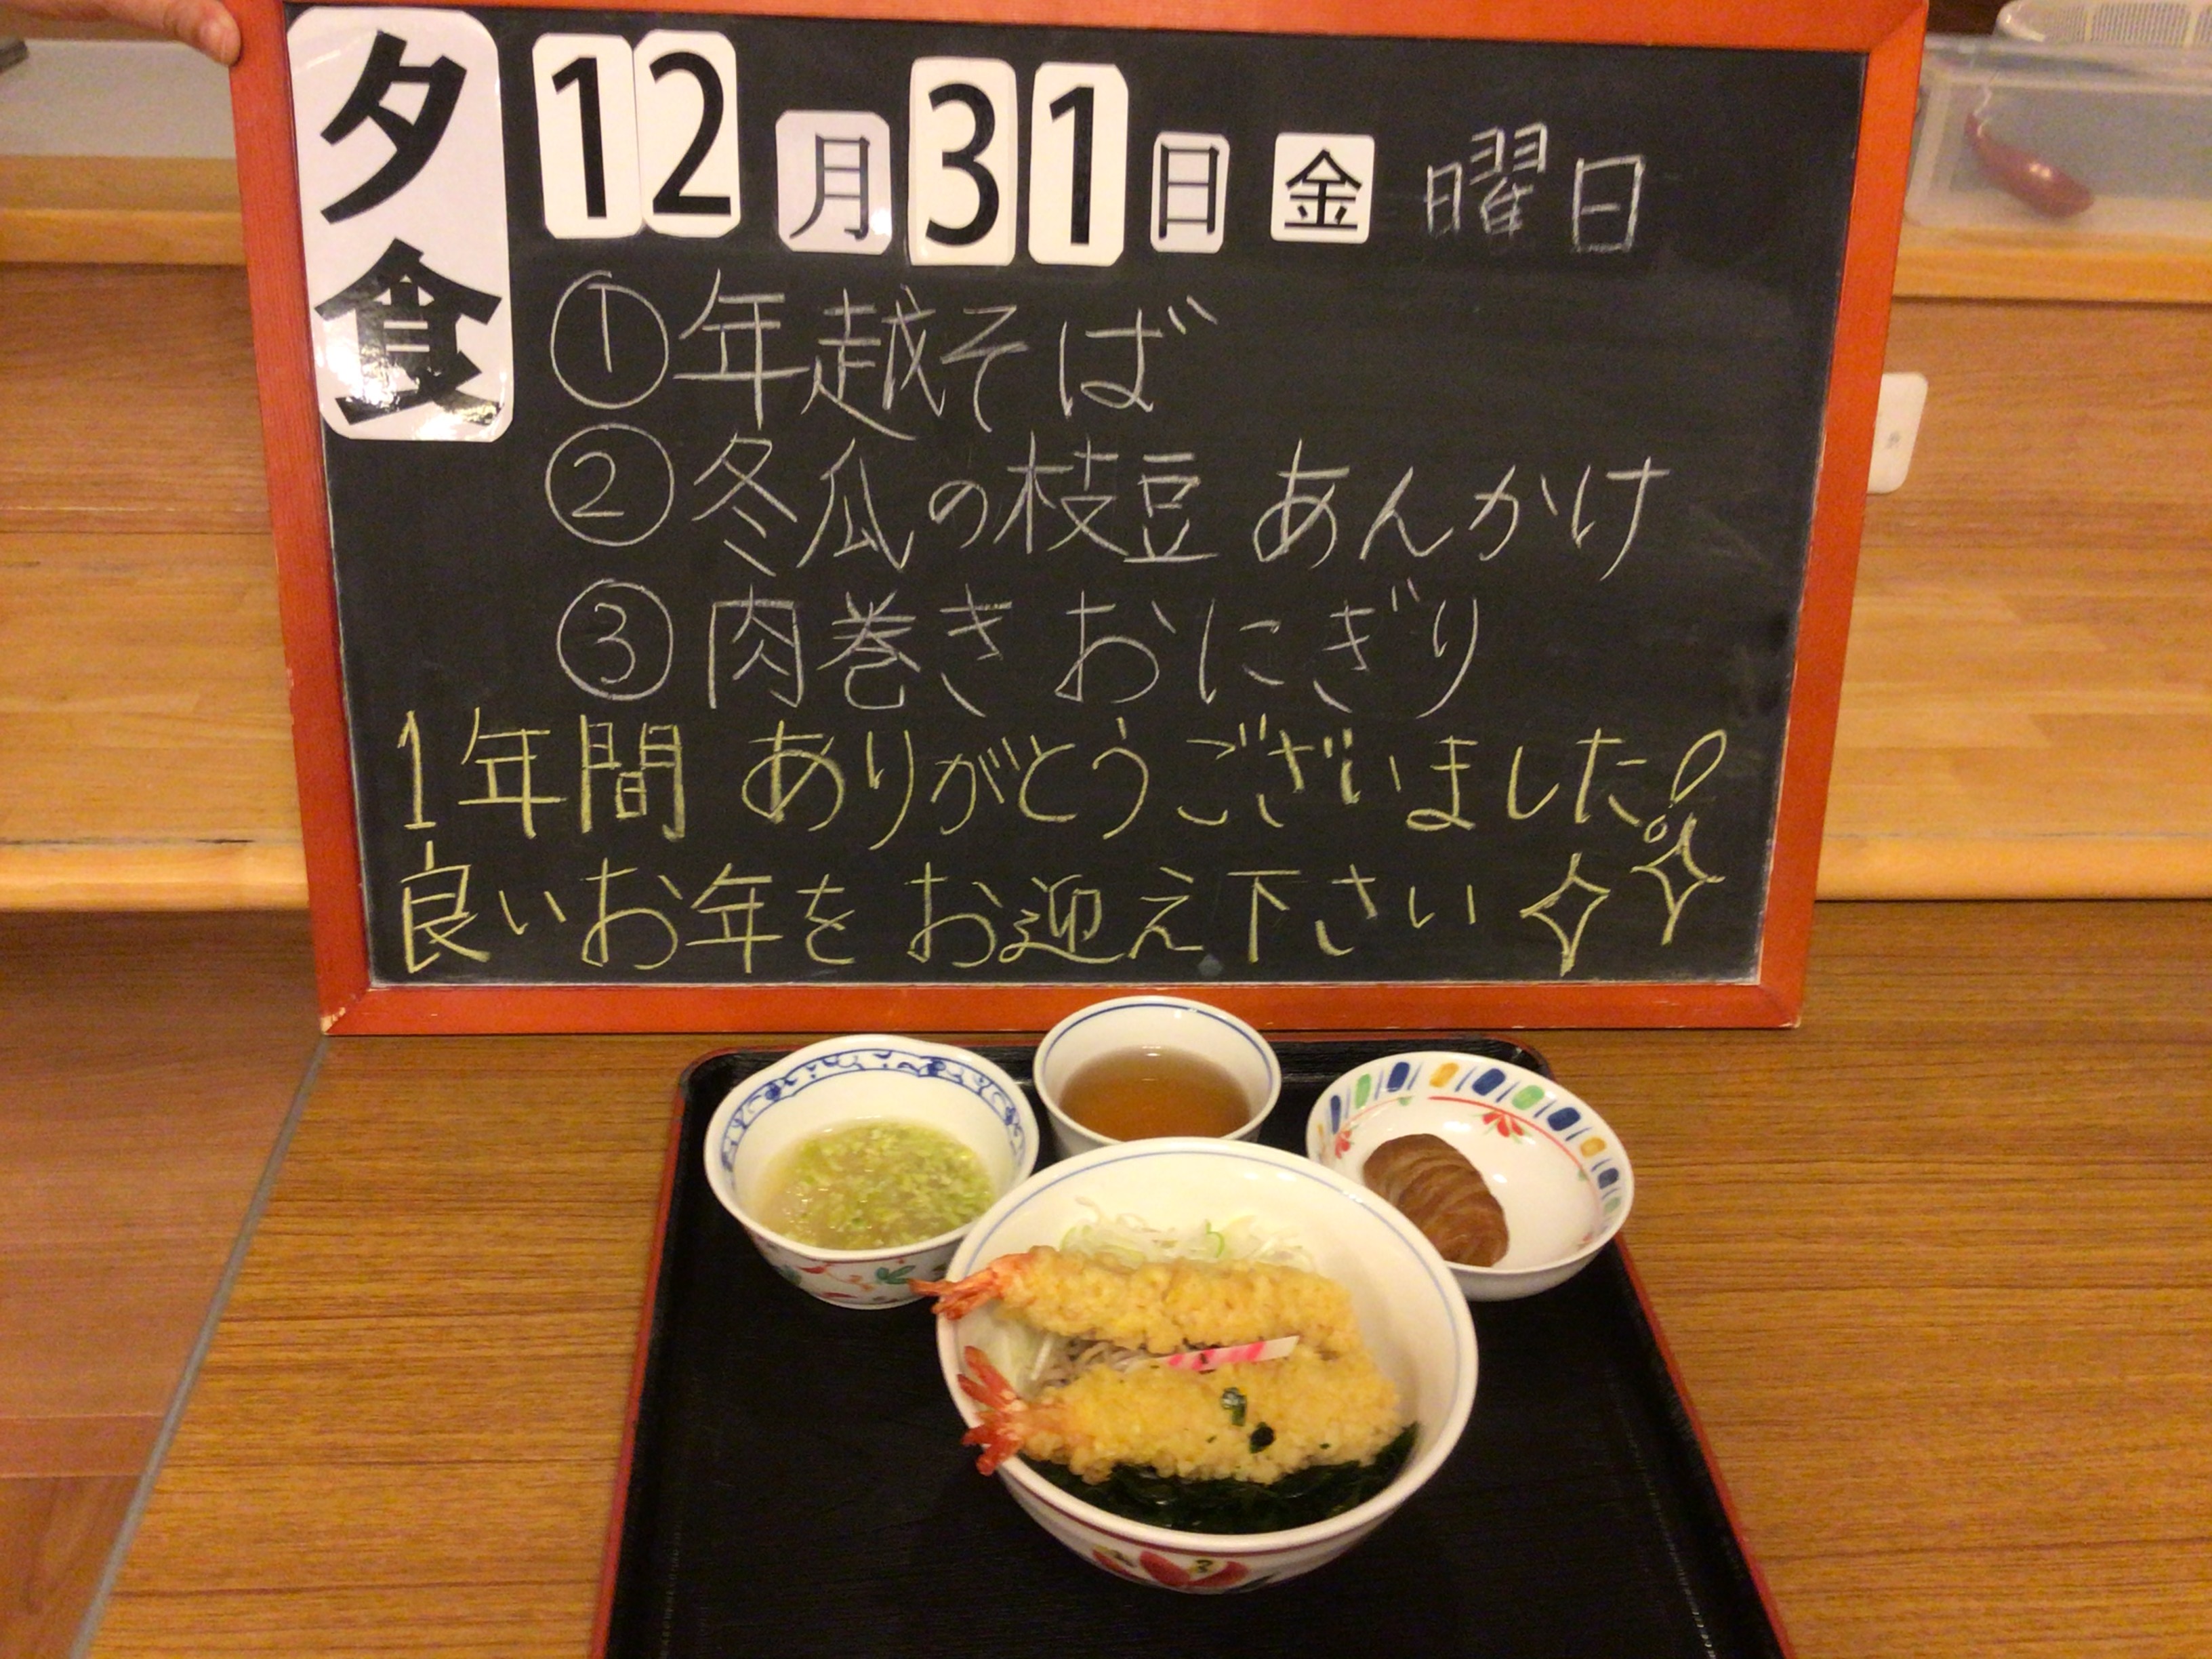 夕食
12月31日 金 曜日
①年越そば
②冬瓜の枝豆 あんかけ
③肉巻き おにぎり
1年間 ありがとうございました!
良いお年を お迎え下さい